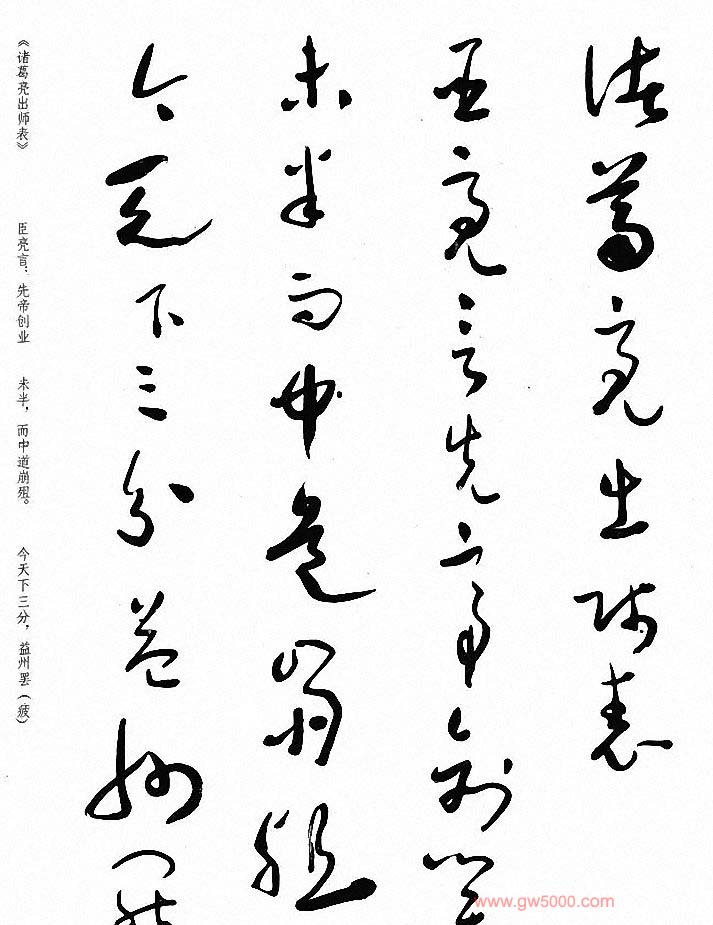 诸葛亮出师表
臣亮言先帝创业
未半而中道崩殂
今天下三分益州罢
《诸葛亮出师表》 臣亮肓：先帝创业 未半，而中道崩殂。 今天下三分，益州罢（疲）
www.gw5000.com